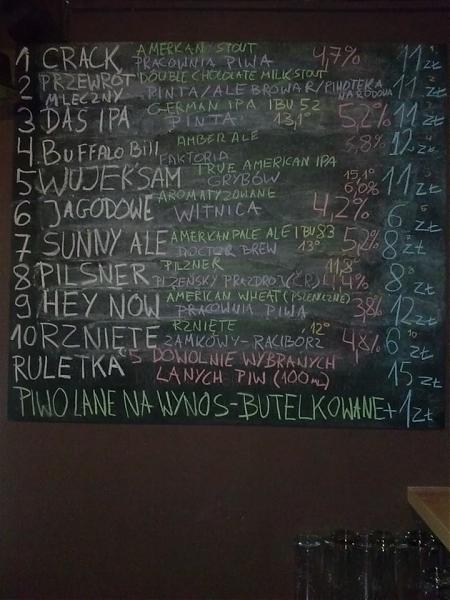 1 CRACK AMERICAN STOUT PRACOWNIA PIWA 4,7% 11 zł
2 PRZEWRÓT MLECZNY DOUBLE CHOCOLATE MILK STOUT PINTA/ALE BROWAR/PINOTEKA NARODOWA 11 zł
3 DAS IPA GERMAN IPA IBU 52 PINTA 13,1° 5,2% 11 zł
4 BUFFALO Bill AMBER ALE FAKTORIA 5,8% 12 zł
5 WUJEK SAM TRUE AMERICAN IPA GRYBÓW 15,1° 6,0% 11 zł
6 JAGODOWE AROMATYZOWANE WITNICA 4,2% 6 zł
7 SUNNY ALE AMERICAN PALE ALE IBU 33 DOCTOR BREW 13° 5,2% 8 zł
8 PILSNER PILZNER PLZEŃSKÝ PRAZDROJ (ČR) 11,8° 4,4% 8 zł
9 HEY NOW AMERICAN WHEAT (PSZENICZNE) PRACOWNIA PIWA 3,8% 12 zł
10 RZNIĘTE RZNIĘTE 12° ZAMKOWY-RACIBÓRZ 4,8% 6 zł
RULETKA "5 DOWOLNIE WYBRANYCH
LANYCH PIW (100 mL) 15 zł
PIWO LANE NA WYNOS-BUTELKOWANE +1 zł